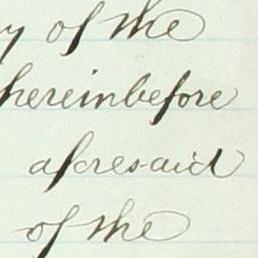 y of the
hereinbefore
aforesaid
of the